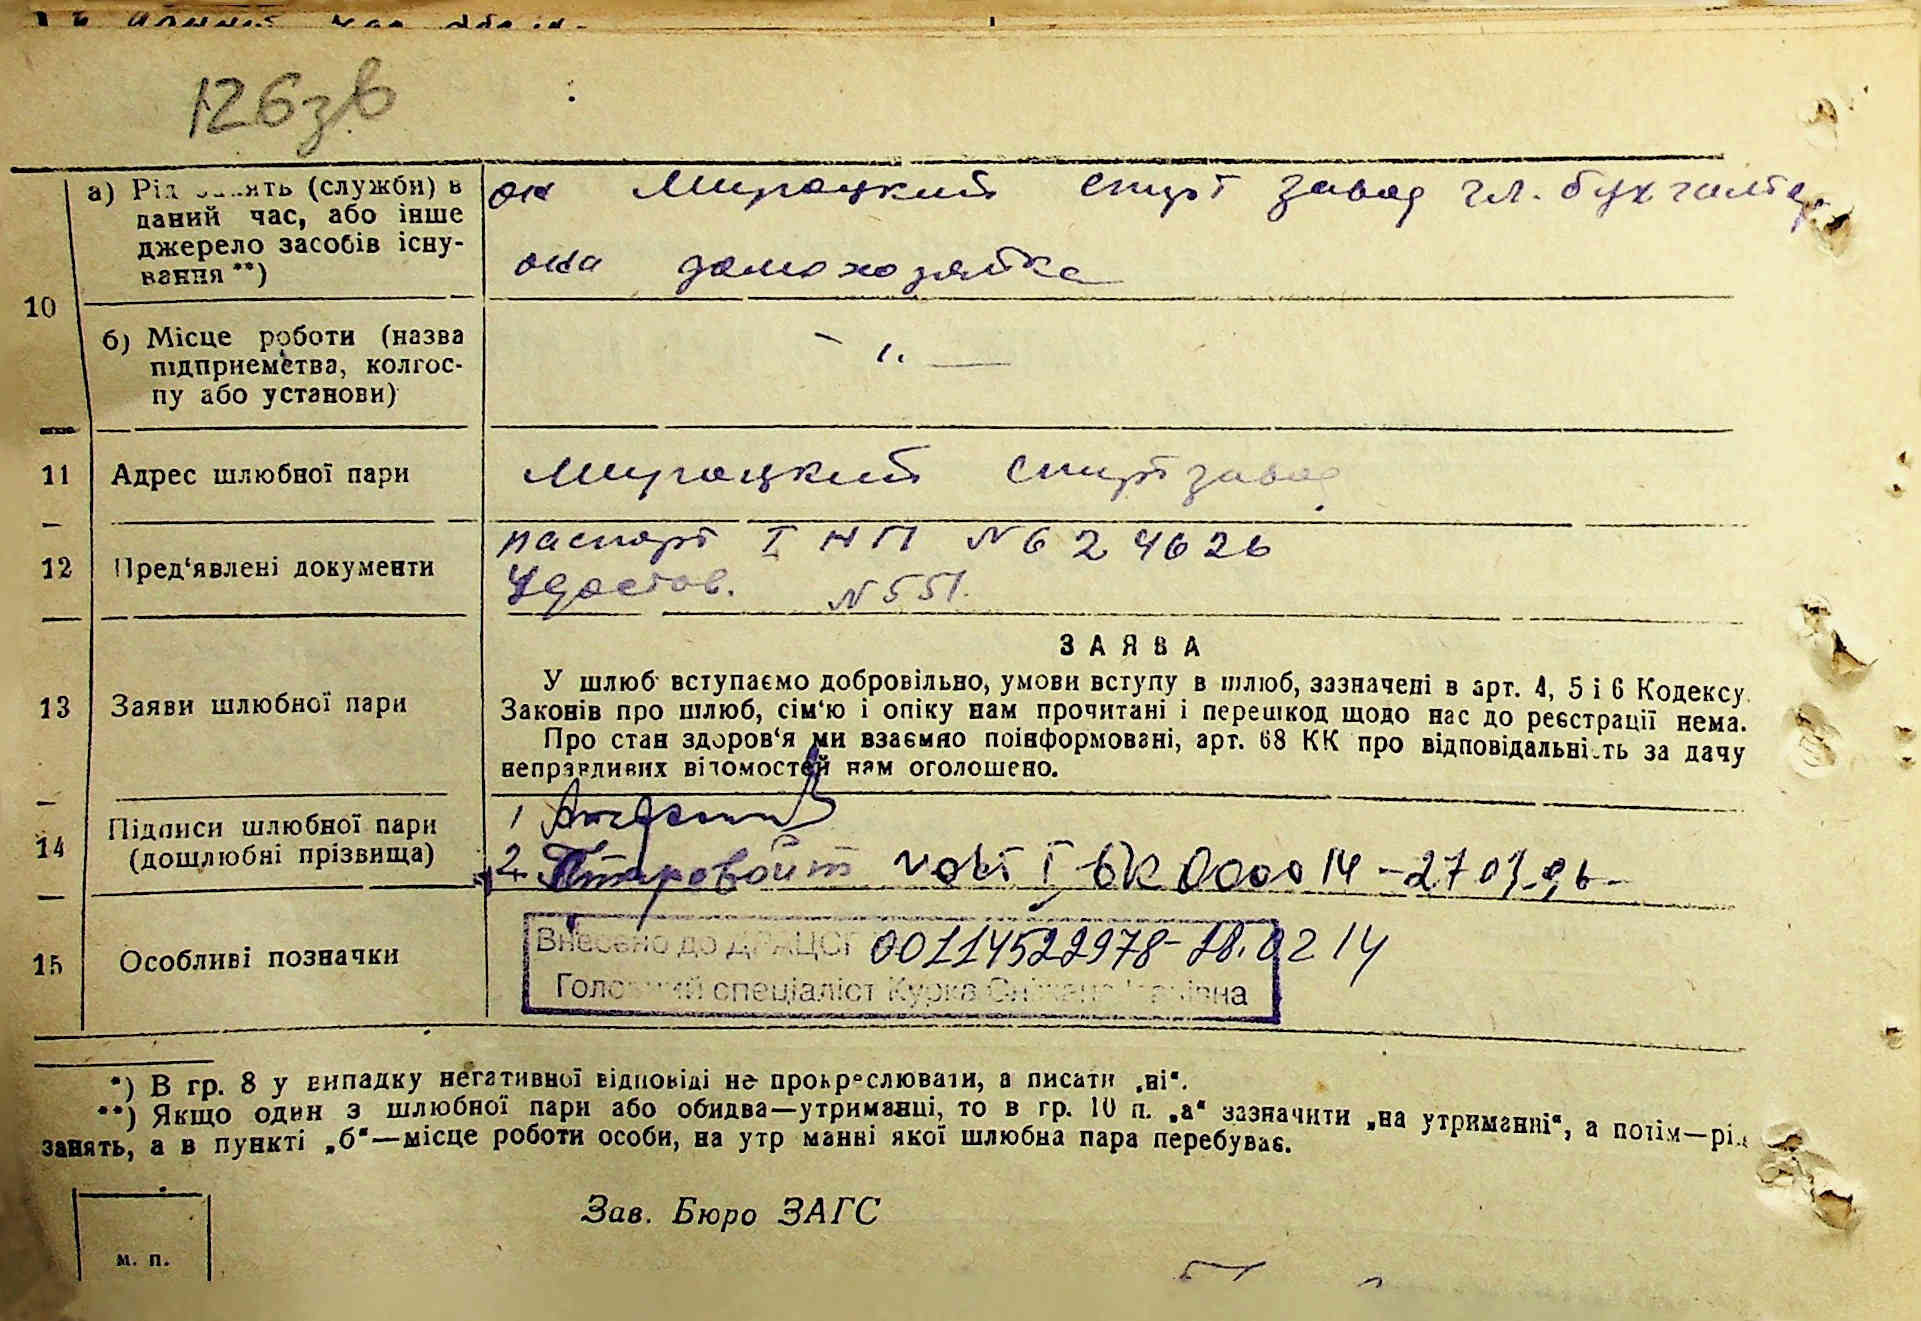 126зв
а) Рід занять (служби) в
даний час, або інше
джерело засобів існу-
вання **)
он Мироцкий спирт завод гл. бухгалтер
она домохозяйка
10
б) Місце роботи (назва
підприємства, колгос-
пу або установи)
— „ —
11 Адрес шлюбної пари
Мироцкий спиртзавод
12 Пред'явлені документи
паспорт I НП № 624626
Удостов. № 551.
13 Заяви шлюбної пари
ЗАЯВА
У шлюб вступаємо добровільно, умови вступу в шлюб, зазначені в арт. 4, 5 і 6 Кодексу
Законів про шлюб, сім'ю і опіку нам прочитані і перешкод щодо нас до реєстрації нема.
Про стан здоров'я ми взаємно поінформовані, арт. 68 КК про відповідальність за дачу
неправдивих відомостей нам оголошено.
14 Підписи шлюбної пари
(дошлюбні прізвища)
1
2.
БК 000014 - 27 03.96-
15 Особливі позначки
Внесено до ДРАЦСГ 00114522978- 28.02 14
Головний спеціаліст Курка Сніжана Іванівна
*) В гр. 8 у випадку негативної відповіді не прокреслювати, а писати „ні“.
**) Якщо один з шлюбної пари або обидва—утриманці, то в гр. 10 п. „а“ зазначити „на утриманні“, а потім—рід
занять, а в пункті „б“—місце роботи особи, на утр манні якої шлюбна пара перебуває.
Зав. Бюро ЗАГС
м. п.